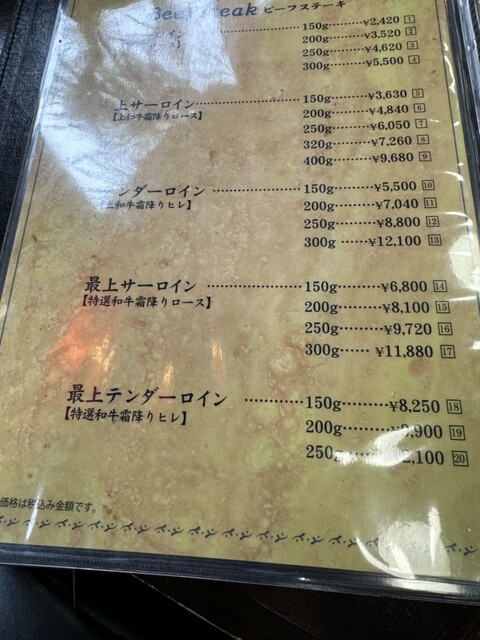 Beef Steak ビーフステーキ
150g ¥2,420 1
200g ¥3,520 2
250g ¥4,620 3
300g ¥5,500 4
上サーロイン 150g ¥3,630 5
【上和牛霜降りロース】 200g ¥4,840 6
250g ¥6,050 7
320g ¥7,260 8
400g ¥9,680 9
ンダーロイン 150g ¥5,500 10
上和牛霜降りヒレ】 200g ¥7,040 11
250g ¥8,800 12
300g ¥12,100 13
最上サーロイン 150g ¥6,800 14
【特選和牛霜降りロース】 200g ¥8,100 15
250g ¥9,720 16
300g ¥11,880 17
最上テンダーロイン 150g ¥8,250 18
【特選和牛霜降りヒレ】 200g ,900 19
250g 2,100 20
価格は税込み金額です。